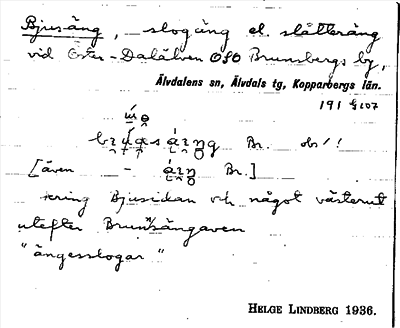 Bjusäng, slogäng el. slåtteräng
vid Öster-Dalälven OSO Brunsbergs by,
Älvdalens sn, Älvdals tg, Kopparbergs län.
191
Br. obs!!
[även – Br.]
kring Bjusidan och något västerut
utefter Brunnsängaven
"ängesslogar"
HELGE LINDBERG 1936.